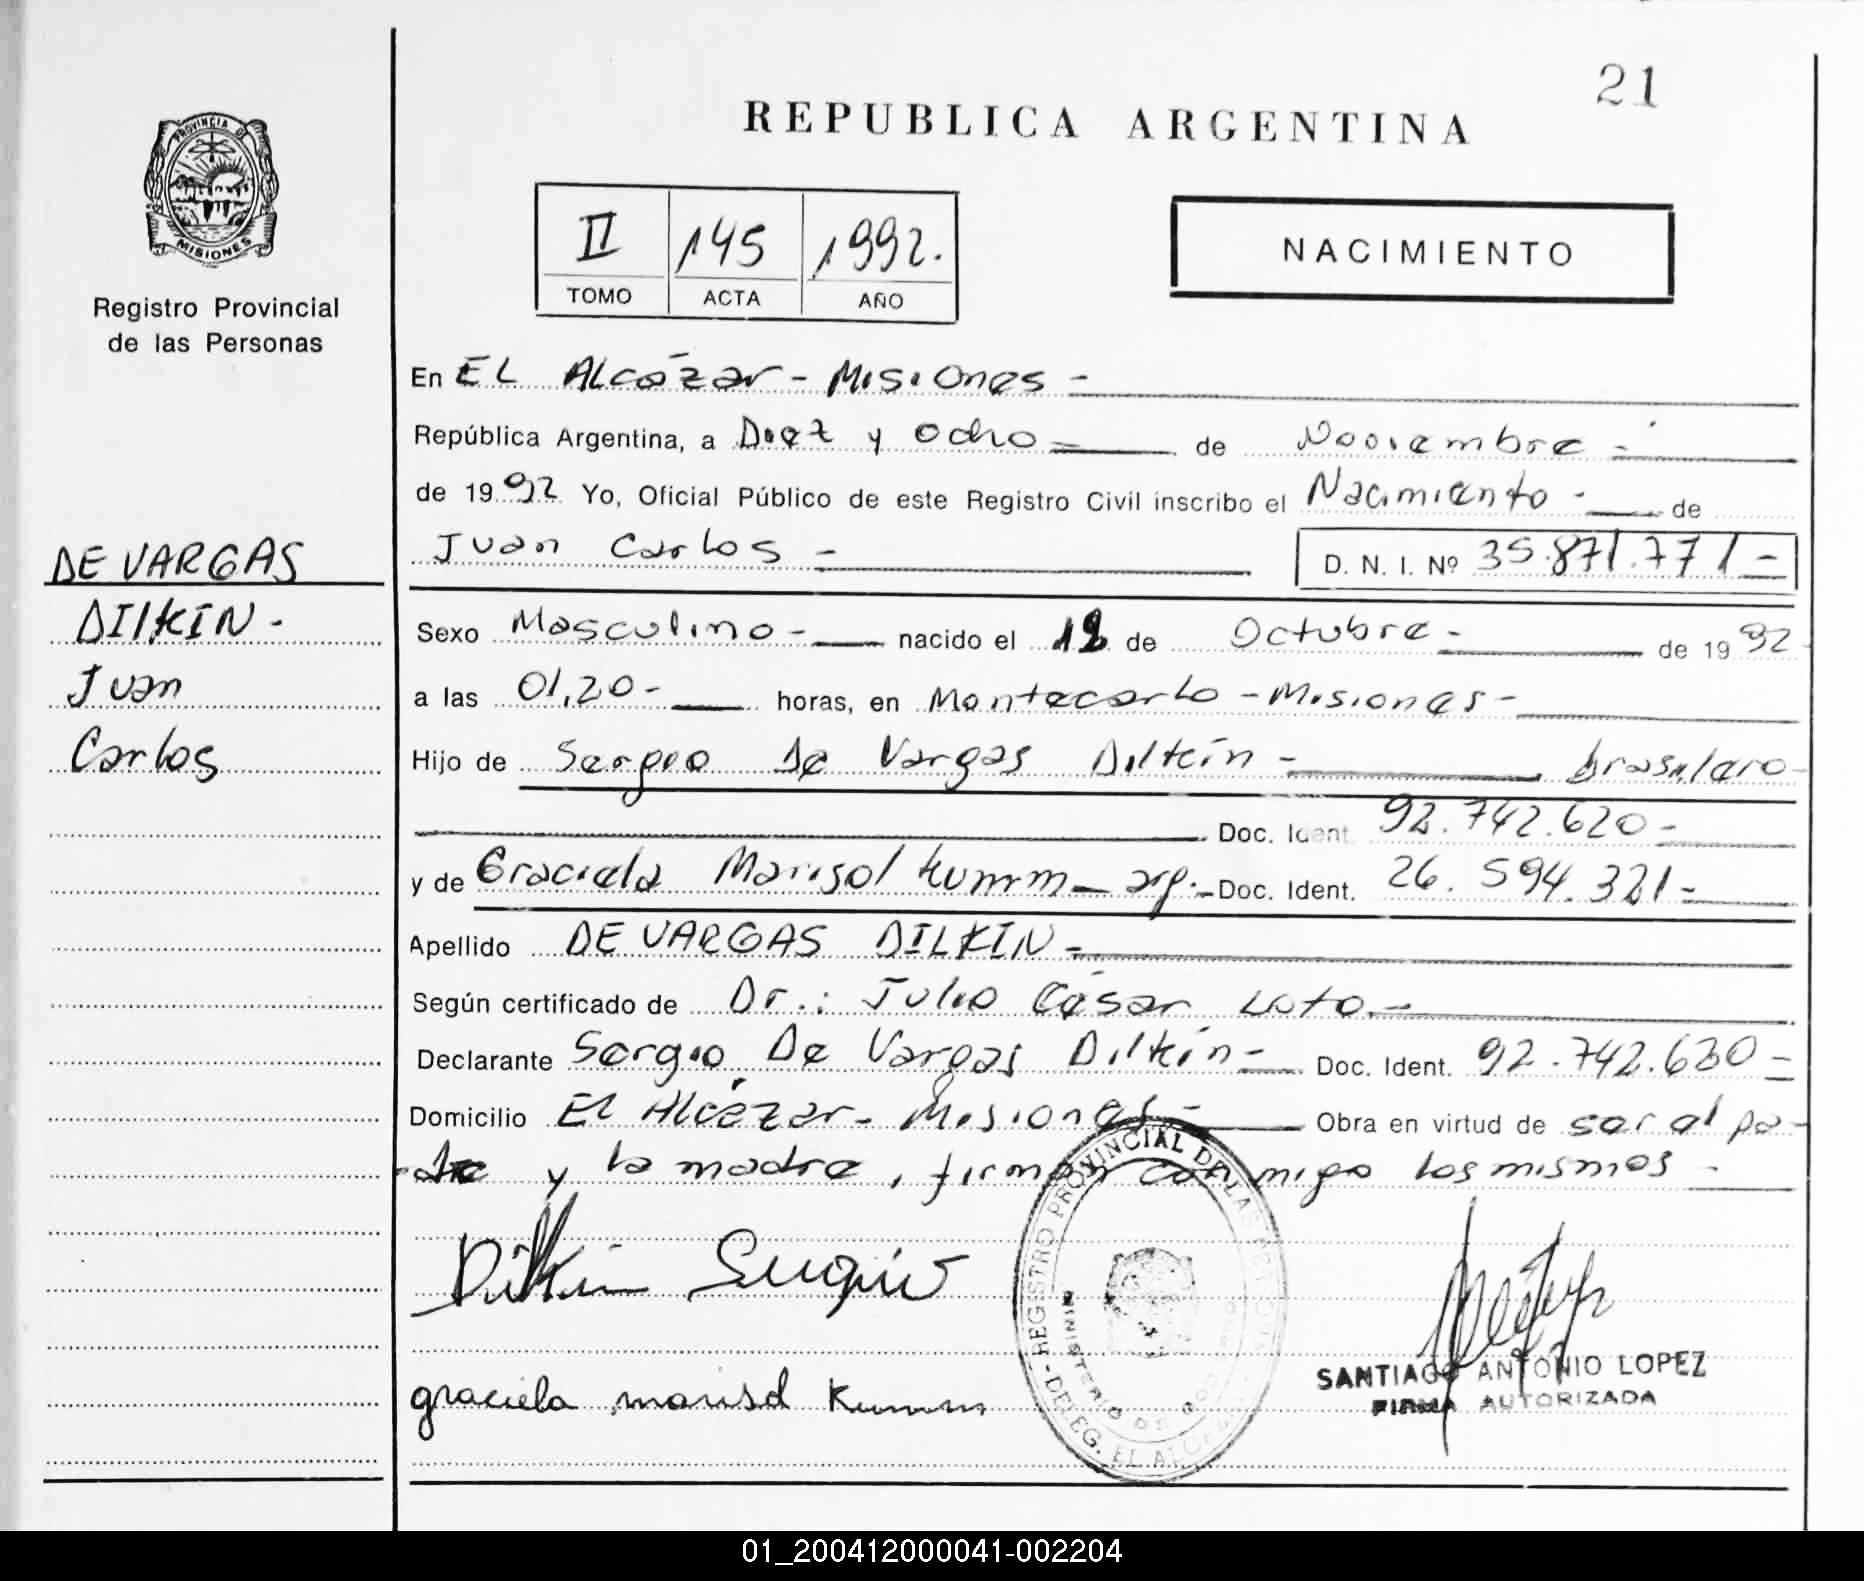 21
REPUBLICA ARGENTINA
PROVINCIA DE
MISIONES
Registro Provincial
de las Personas
II 145 1992.
TOMO ACTA AÑO
NACIMIENTO
En EL Alcázar - Misiones -
República Argentina, a Diez y ocho de Noviembre -
de 1992 Yo, Oficial Público de este Registro Civil inscribo el Nacimiento - de
Juan Carlos - D. N. I. Nº 35.871.771 -
DE VARGAS
DILKIN -
Juan
Carlos
Sexo Masculino - nacido el de Octubre - de 1992
a las 01,20 - horas, en Montecarlo - Misiones -
Hijo de Sergio De Vargas Dilkin - brasilero -
Doc. Ident. 92.742.620 -
y de Graciela Marisol Kumm - arg. - Doc. Ident. 26.594.321 -
Apellido DE VARGAS DILKIN -
Según certificado de Dr.: Julio César Loto. -
Declarante Sergio De Vargas Dilkin - Doc. Ident. 92.742.630 -
Domicilio El Alcázar - Misiones - Obra en virtud de ser el pa-
dre y la madre, firman conmigo los mismos -
Dilkin Sergio
graciela marisol Kumm
REGISTRO PROVINCIAL DE LAS PERSONAS
MINISTERIO DE GOBIERNO
DELEG. EL ALCAZAR
SANTIAGO ANTONIO LOPEZ
FIRMA AUTORIZADA
01_200412000041-002204